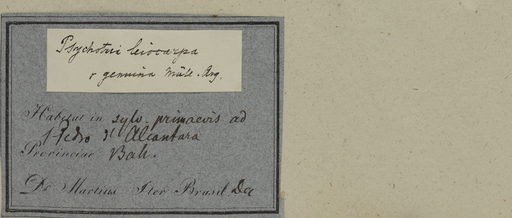 Psychotri leiocarpa
γ genuina Müll. Arg.
Habitat in sylv. primaevis ad
S. Pedro d'Alcantara
Provinciae Bah.
Dr Martius Iter Brasil